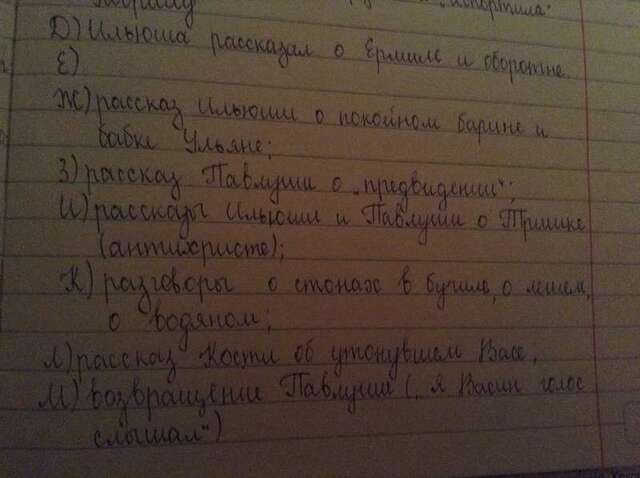 испортила"
Д) Ильюша рассказал о Ермиле и оборотне.
Е)
Ж) рассказ Ильюши о покойном барине и
бабке Ульяне;
З) рассказ Павлуши о „предвидении";
И) рассказы Ильюши и Павлуши о Тришке
(антихристе);
К) разговоры о стонах в бучиле, о лешем,
о водяном;
Л) рассказ Кости об утонувшем Васе.
М) возвращение Павлуши („я Васин голос
слышал")